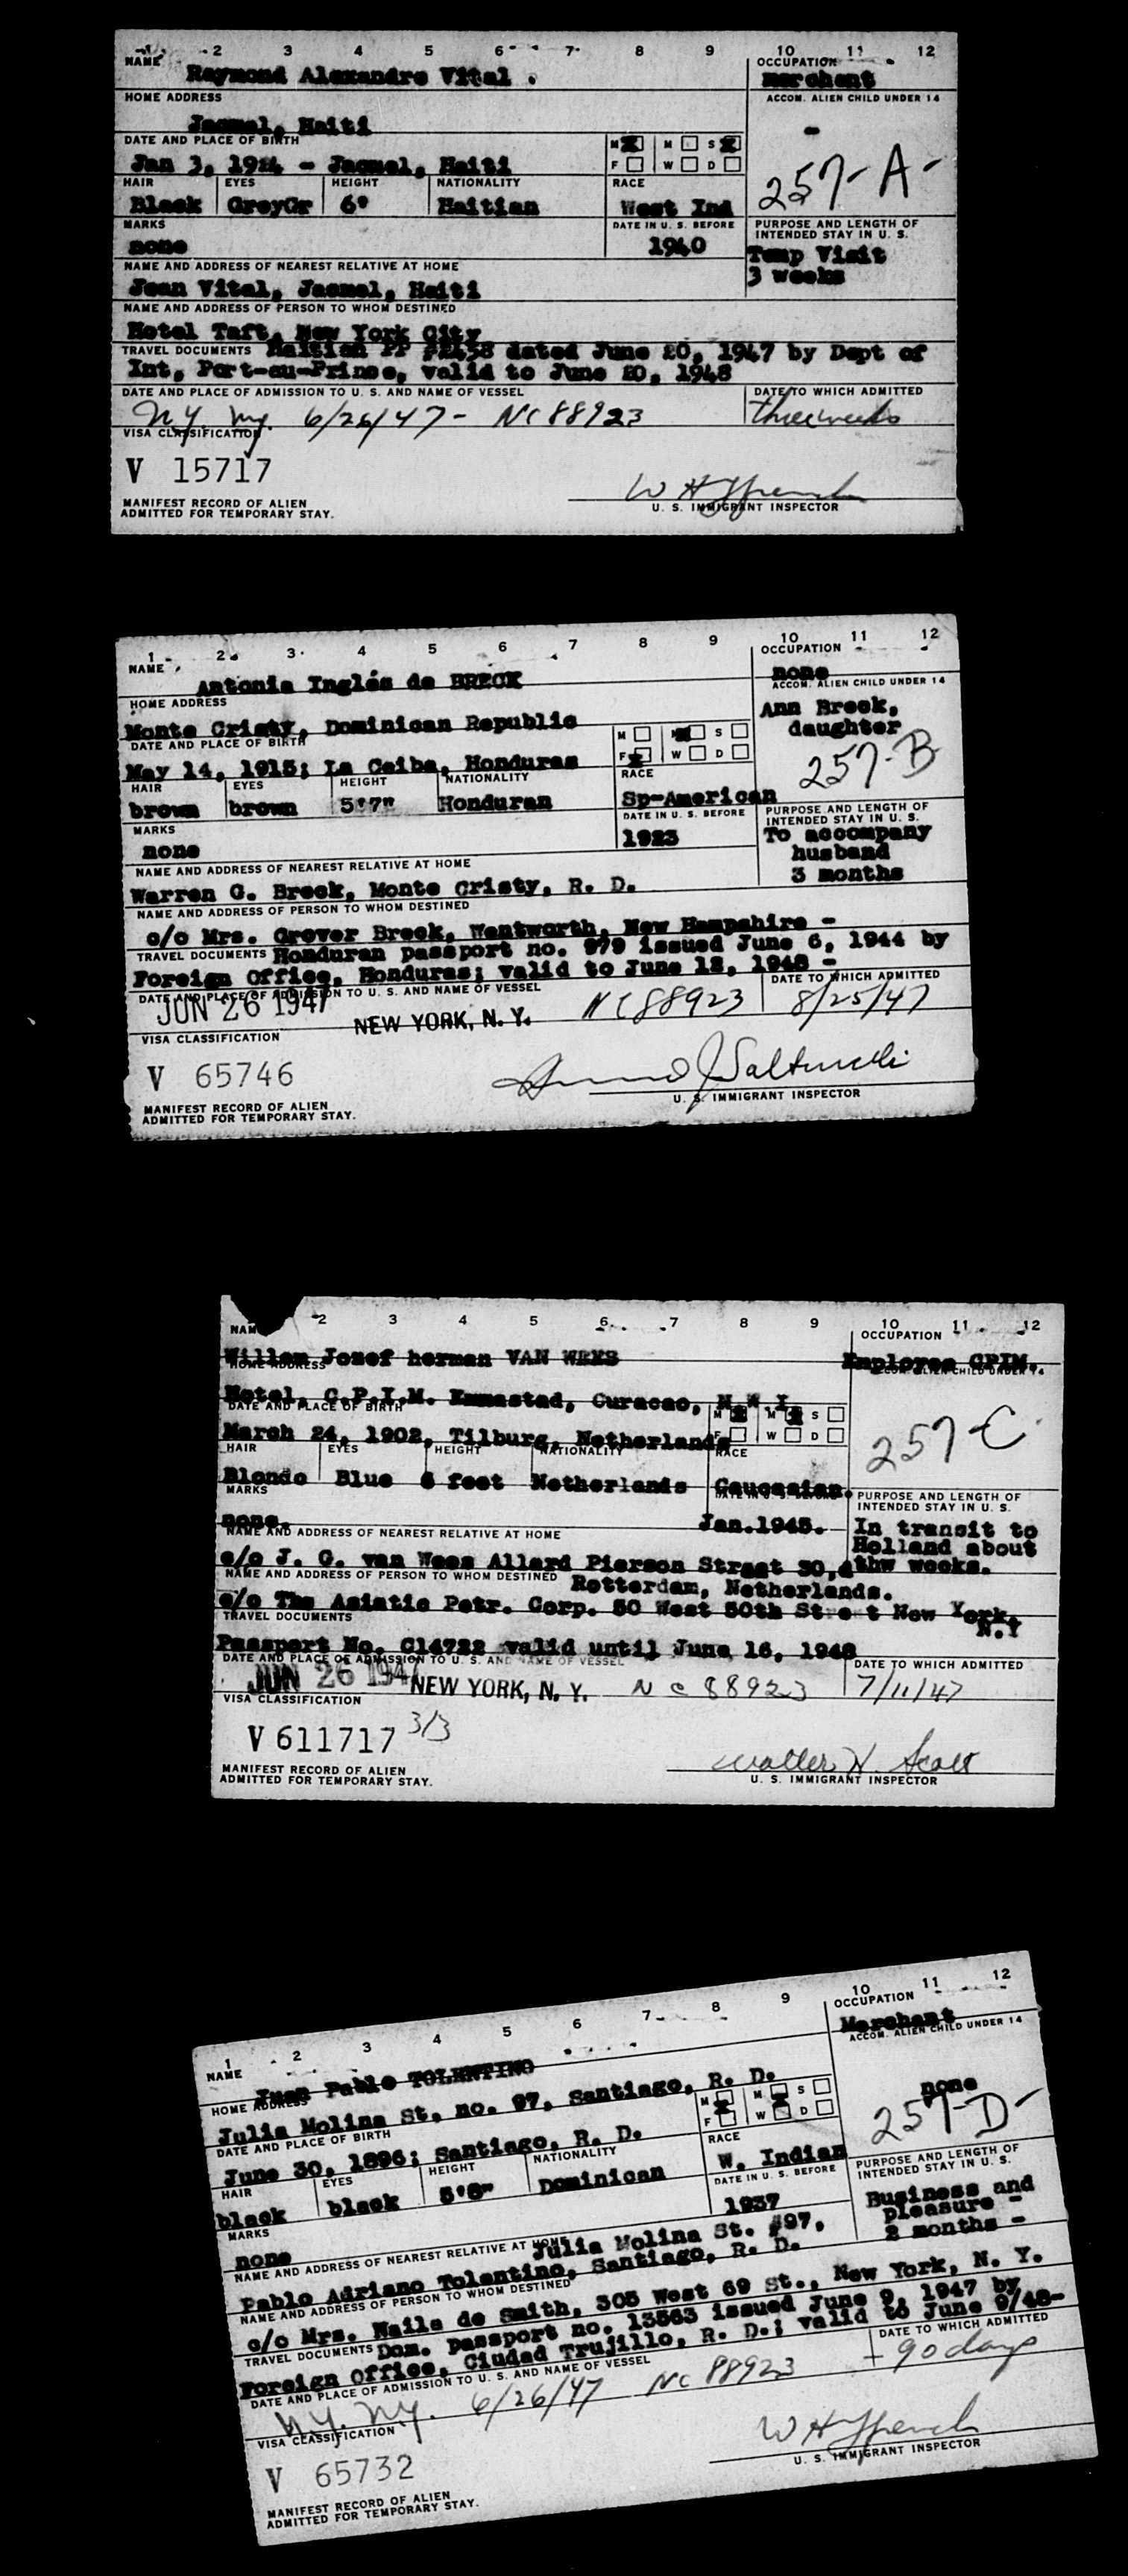 1 2 3 4 5 6 7 8 9 10 11 12
NAME OCCUPATION
Raymond Alexandre Vital merchant
HOME ADDRESS ACCOM. ALIEN CHILD UNDER 14
Jacmel, Haiti -
DATE AND PLACE OF BIRTH M M S
Jan 3, - Jacmel, Haiti F W D
257-A-
HAIR EYES HEIGHT NATIONALITY RACE
Black GreyGr 6' Haitian West Ind
MARKS DATE IN U. S. BEFORE PURPOSE AND LENGTH OF INTENDED STAY IN U. S.
none 1940 Temp Visit
3 weeks
NAME AND ADDRESS OF NEAREST RELATIVE AT HOME
Jean Vital, Jacmel, Haiti
NAME AND ADDRESS OF PERSON TO WHOM DESTINED
Hotel Taft, New York City
TRAVEL DOCUMENTS Haitian PP dated June 20, 1947 by Dept of
Int, Port-au-Prince, valid to June 20, 1948
DATE AND PLACE OF ADMISSION TO U. S. AND NAME OF VESSEL DATE TO WHICH ADMITTED
N.Y. N.Y. 6/26/47- NC 88923 three weeks
VISA CLASSIFICATION
V 15717
W H Ffrench
MANIFEST RECORD OF ALIEN
ADMITTED FOR TEMPORARY STAY.
U. S. IMMIGRANT INSPECTOR
1 2 3 4 5 6 7 8 9 10 11 12
NAME OCCUPATION
Antonia Inglés de BRECK none
HOME ADDRESS ACCOM. ALIEN CHILD UNDER 14
Monte Cristy, Dominican Republic Ann Breck,
daughter
DATE AND PLACE OF BIRTH M M S
May 14, 1915; La Ceiba, Honduras F W D
257-B
HAIR EYES HEIGHT NATIONALITY RACE
brown brown 5'7" Honduran Sp-American
MARKS DATE IN U. S. BEFORE PURPOSE AND LENGTH OF INTENDED STAY IN U. S.
none 1923 To accompany
husband
3 months
NAME AND ADDRESS OF NEAREST RELATIVE AT HOME
Warren G. Breck, Monte Cristy, R. D.
NAME AND ADDRESS OF PERSON TO WHOM DESTINED
c/o Mrs. Grover Breck, Wentworth, New Hampshire -
TRAVEL DOCUMENTS Honduran passport no. 979 issued June 6, 1944 by
Foreign Office, Honduras; valid to June 12, 1948 -
DATE AND PLACE OF ADMISSION TO U. S. AND NAME OF VESSEL DATE TO WHICH ADMITTED
JUN 26 1947 NEW YORK, N. Y. NC88923 8/25/47
VISA CLASSIFICATION
V 65746
U. S. IMMIGRANT INSPECTOR
MANIFEST RECORD OF ALIEN
ADMITTED FOR TEMPORARY STAY.
2 3 4 5 6 7 8 9 10 11 12
NAM OCCUPATION
Willem Jozef herman VAN WEES Employee CPIM.
HOME ADDRESS ACCOM. ALIEN CHILD UNDER 14
Hotel, C.P.I.M. Emmastad, Curacao, N.W.I.
DATE AND PLACE OF BIRTH M M S
March 24, 1902, Tilburg, Netherlands F W D
257-C
HAIR EYES HEIGHT NATIONALITY RACE
Blonde Blue 6 feet Netherlands Caucasian.
MARKS DATE IN U. S. BEFORE PURPOSE AND LENGTH OF INTENDED STAY IN U. S.
none. Jan.1945. In transit to
Holland about
thw weeks.
NAME AND ADDRESS OF NEAREST RELATIVE AT HOME
c/o J. G. van Wees Allard Pierson Straat
Rotterdam, Netherlands.
NAME AND ADDRESS OF PERSON TO WHOM DESTINED
c/o The Asiatic Petr. Corp. 50 West 50th Street New York,
N.Y
TRAVEL DOCUMENTS
Passport No. C14722 valid until June 16, 1948
DATE AND PLACE OF ADMISSION TO U. S. AND NAME OF VESSEL DATE TO WHICH ADMITTED
JUN 26 194 NEW YORK, N. Y. NC 88923 7/11/47
VISA CLASSIFICATION
V 611717 3/3
Walter H. Scott
MANIFEST RECORD OF ALIEN
ADMITTED FOR TEMPORARY STAY.
U. S. IMMIGRANT INSPECTOR
1 2 3 4 5 6 7 8 9 10 11 12
NAME OCCUPATION
Juan Pablo TOLENTINO Merchant
HOME ADDRESS ACCOM. ALIEN CHILD UNDER 14
Julia Molina St. no. 97, Santiago, R. D. none
DATE AND PLACE OF BIRTH M M S
June 30, 1896; Santiago, R. D. F W D
257-D-
HAIR EYES HEIGHT NATIONALITY RACE
black black 5'8" Dominican W. Indian
MARKS DATE IN U. S. BEFORE PURPOSE AND LENGTH OF INTENDED STAY IN U. S.
none 1937 Business and
pleasure -
2 months -
NAME AND ADDRESS OF NEAREST RELATIVE AT HOME Julia Molina St. #97,
Pablo Adriano Tolentino, Santiago, R. D.
NAME AND ADDRESS OF PERSON TO WHOM DESTINED
c/o Mrs. Naila de Smith, 305 West 69 St., New York, N. Y.
TRAVEL DOCUMENTS Dom. passport no. 13563 issued June 9, 1947 by
Foreign Office, Ciudad Trujillo, R. D.; valid to June 9/48-
DATE AND PLACE OF ADMISSION TO U. S. AND NAME OF VESSEL DATE TO WHICH ADMITTED
N.Y. N.Y. 6/26/47 NC 88923 - 90 days
VISA CLASSIFICATION
V 65732
W H Ffrench
MANIFEST RECORD OF ALIEN
ADMITTED FOR TEMPORARY STAY.
U. S. IMMIGRANT INSPECTOR